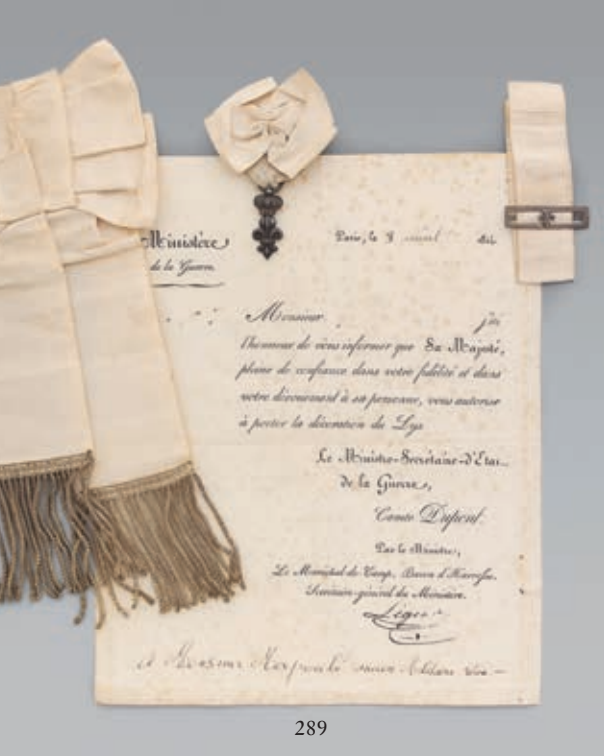 Ministère
de la Guerre
Paris, le 8
Monsieur, j'ai
l'honneur de vous informer que Sa Majesté,
pleine de confiance dans votre fidélité et dans
votre dévouement à sa personne, vous autorise
à porter la décoration du Lys
Le Ministre-Secrétaire-d'Etat
de la Guerre,
Comte Dupont
Par le Ministre,
Le Maréchal de Camp, Baron d'
Secrétaire-général du Ministère.
A Monsieur
289